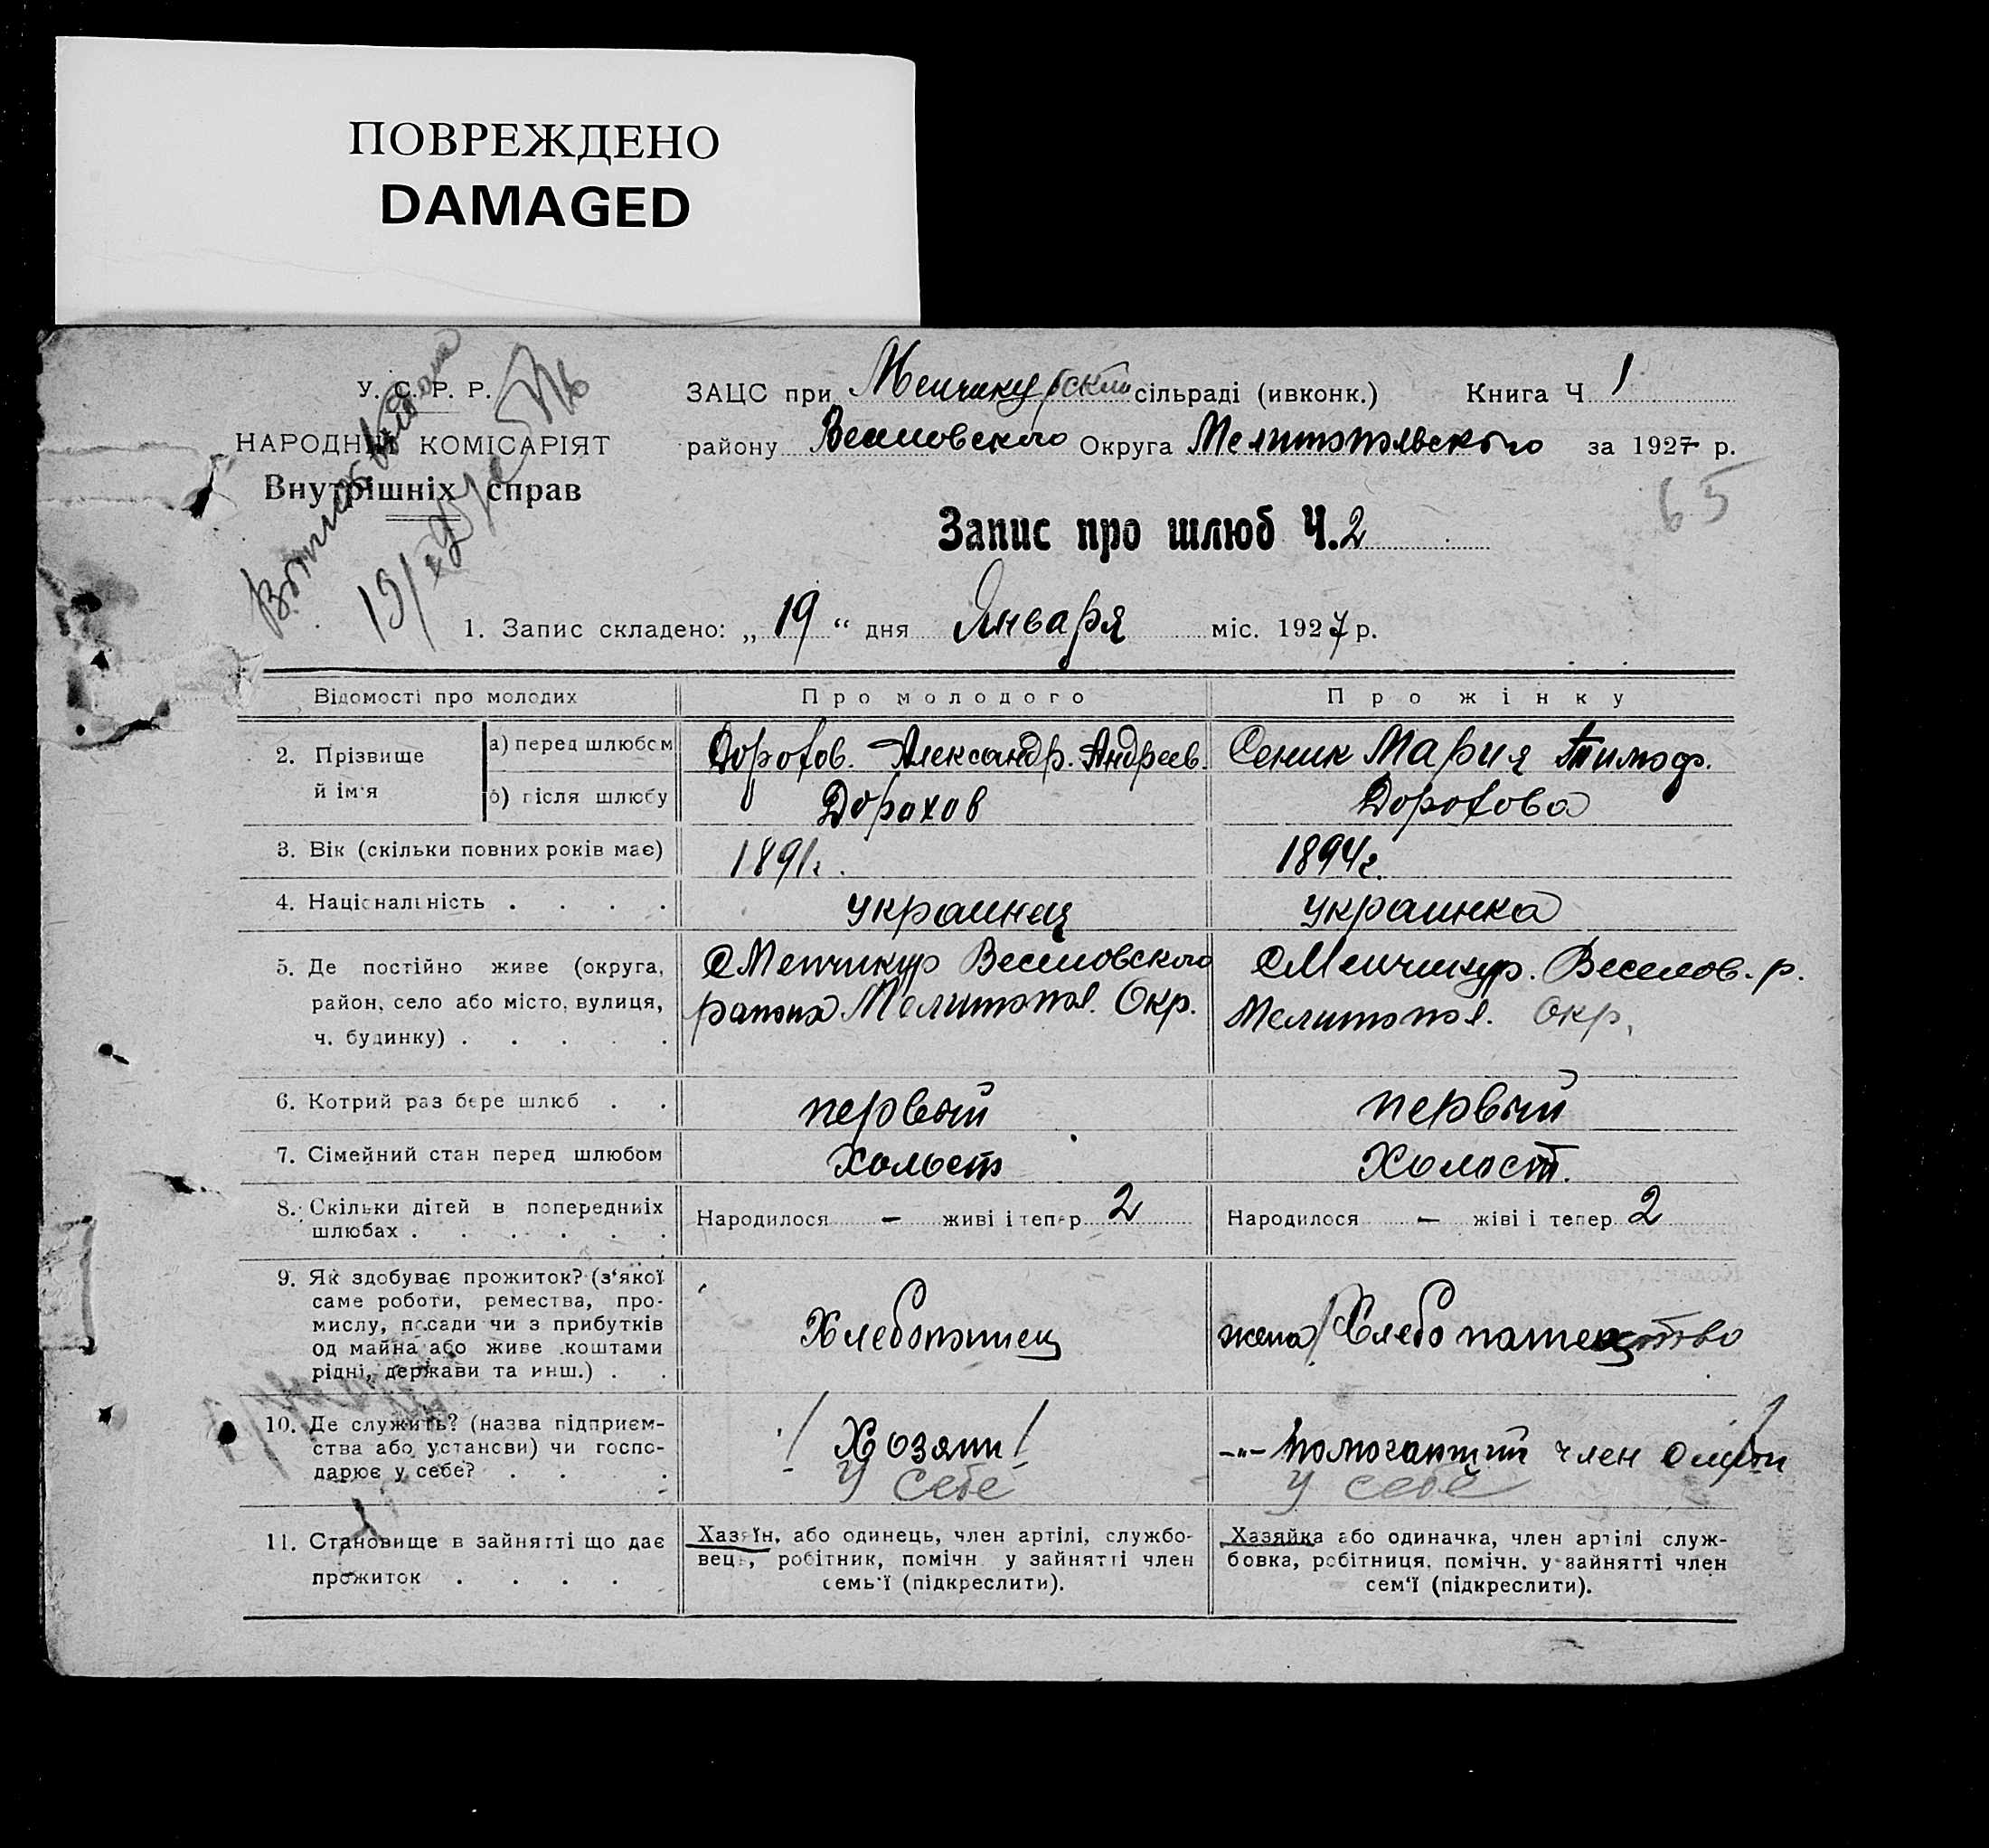 ПОВРЕЖДЕНО
DAMAGED
У. С. Р. Р.
НАРОДНІЙ КОМІСАРІЯТ
Внутрішніх справ
ЗАЦС при Менчикурском сільраді (ивконк.) Книга Ч 1
району Веселовского Округа Мелитопольвского за 1927 р.
65
Запис про шлюб Ч. 2
1. Запис складено: „ 19 “ дня Января міс. 1927 р.
Відомості про молодих Про молодого Про жінку
2. Прізвище й ім'я
а) перед шлюбом Дорохов. Александр. Андреев. Сеник Мария Тимоф.
б) після шлюбу Дорохов Дорохова
3. Вік (скільки повних років має) 1891г. 1894г.
4. Національність . . . . украинец украинка
5. Де постійно живе (округа, район, село або місто, вулиця, ч. будинку) . . . . .
С Менчикур Веселовского
района Мелитопол. Окр.
С Менчикур. Веселов. р.
Мелитопол. Окр.
6. Котрий раз бере шлюб . . первый первый
7. Сімейний стан перед шлюбом Холост Холост.
8. Скільки дітей в попередніх шлюбах . . . . . .
Народилося — живі і тепер 2 Народилося — жіві і тепер 2
9. Як здобуває прожиток? (з'якої
саме роботи, ремества, про-
мислу, посади чи з прибутків
од майна або живе коштами
рідні, держави та инш.) . .
Хлебопашец жена/Хлебопашество
10. Де служить? (назва підприєм-
ства або установи) чи госпо-
дарює у себе? . . . .
/Хозяин/
у себе
-"- помогающий член семьи
у себе
11. Становище в зайнятті що дає
прожиток . . . .
Хазяїн, або одинець, член артілі, службо-
вець, робітник, помічн. у зайнятті член
семь'ї (підкреслити).
Хазяйка або одиначка, член артілі служ-
бовка, робітниця, помічн. у зайнятті член
сем'ї (підкреслити).